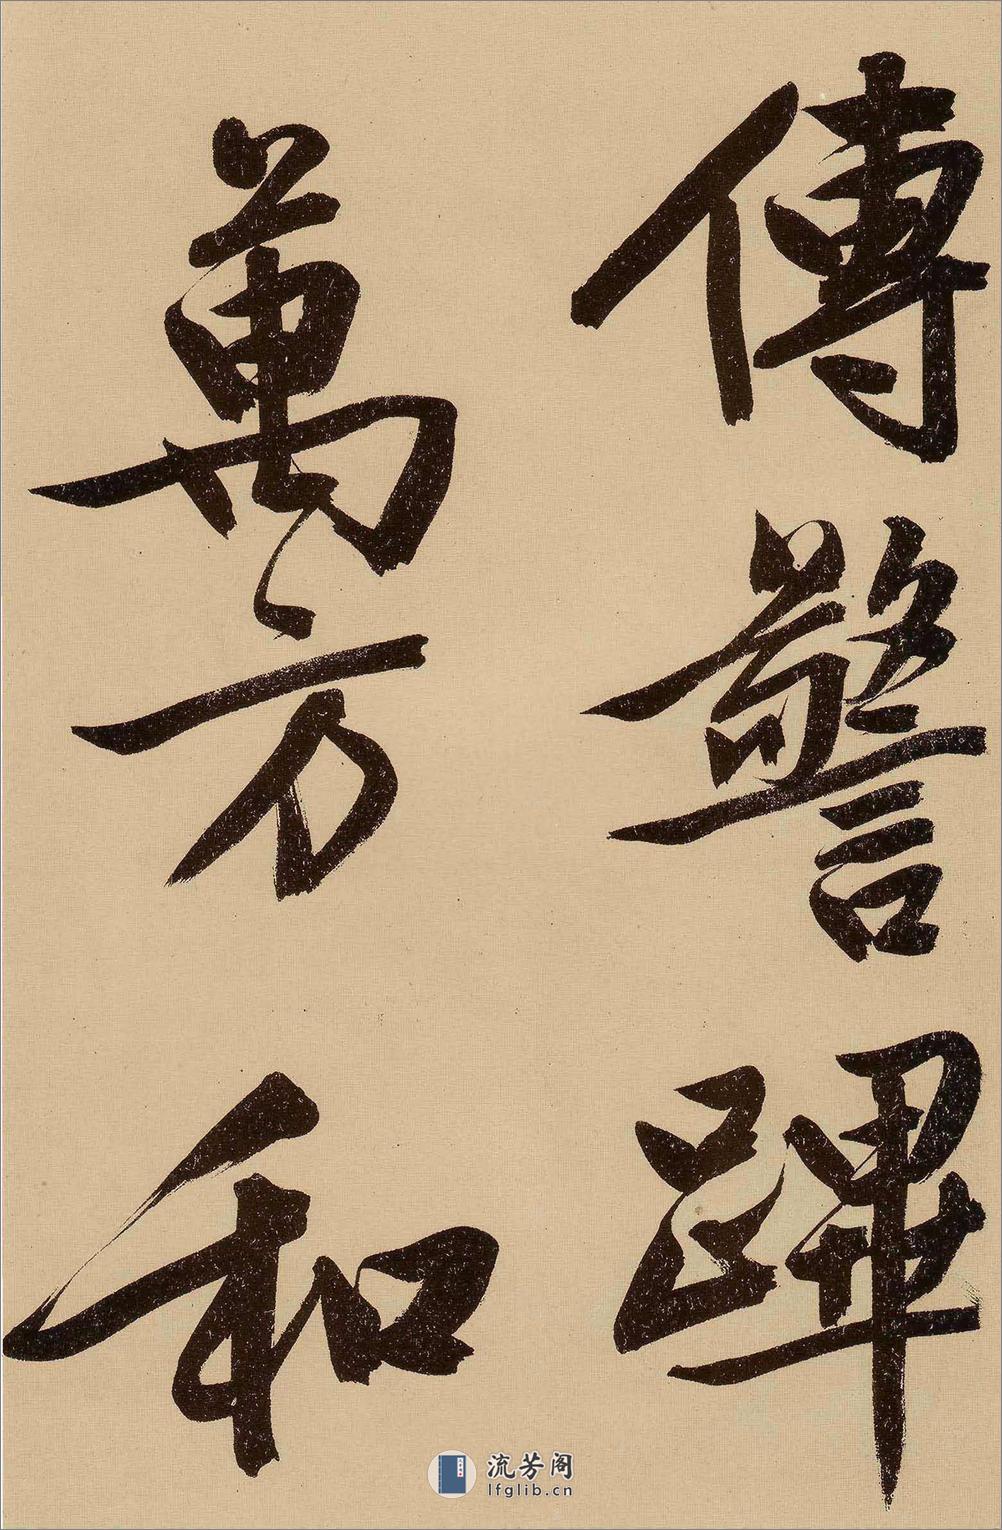 傳警蹕
萬方和
流芳阁
lfglib.cn